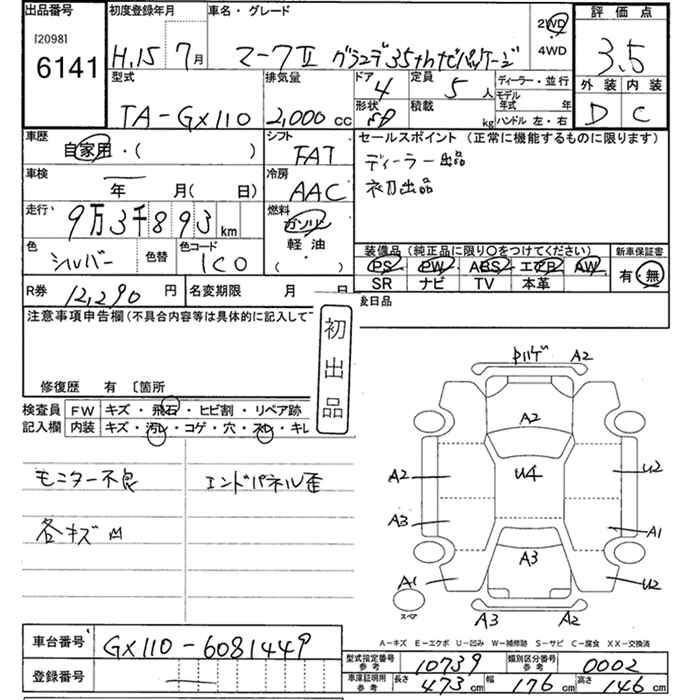 出品番号
[2098]
6141
初度登録年月
H.15 7月
車名・グレード
マークⅡ グランデ35thナビパッケージ
2WD
4WD
評価点
3.5
外装 内装
D C
型式
TA-GX110
排気量
2,000 cc
ドア 4
形状
定員 5 人
積載 kg
ディーラー・並行
モデル年式 年
ハンドル 左・右
車歴
自家用・( )
車検
年 月( 日)
走行
9万3千893 km
色
シルバー
色替
色コード
1C0
シフト
FAT
冷房
AAC
燃料
ガソリン
軽油
( )
セールスポイント(正常に機能するものに限ります)
ディーラー出品
初出品
装備品(純正品に限り○をつけてください)
PS PW ABS エアB AW
SR ナビ TV 本革
新車保証書
有・無
R券 12,290 円
名変期限 月 日
後日品
注意事項申告欄(不具合内容等は具体的に記入して
修復歴 有 〔箇所
初出品
検査員記入欄
FW キズ・飛石・ヒビ割・リペア跡
内装 キズ・汚レ・コゲ・穴・スレ・キレ
モニター不良
エンドパネル歪
各キズ凹
A2
A2
U4
A2
U2
A3
A1
A3
A1
U2
スペア
A3
A2
A-キズ E-エクボ U-凹み W-補修跡 S-サビ C-腐食 XX-交換済
車台番号 GX110-6081449
登録番号
型式指定番号 参考 10739
類別区分番号 参考 0002
車庫証明用 参考 長さ 473 cm 幅 176 cm 高さ 146 cm